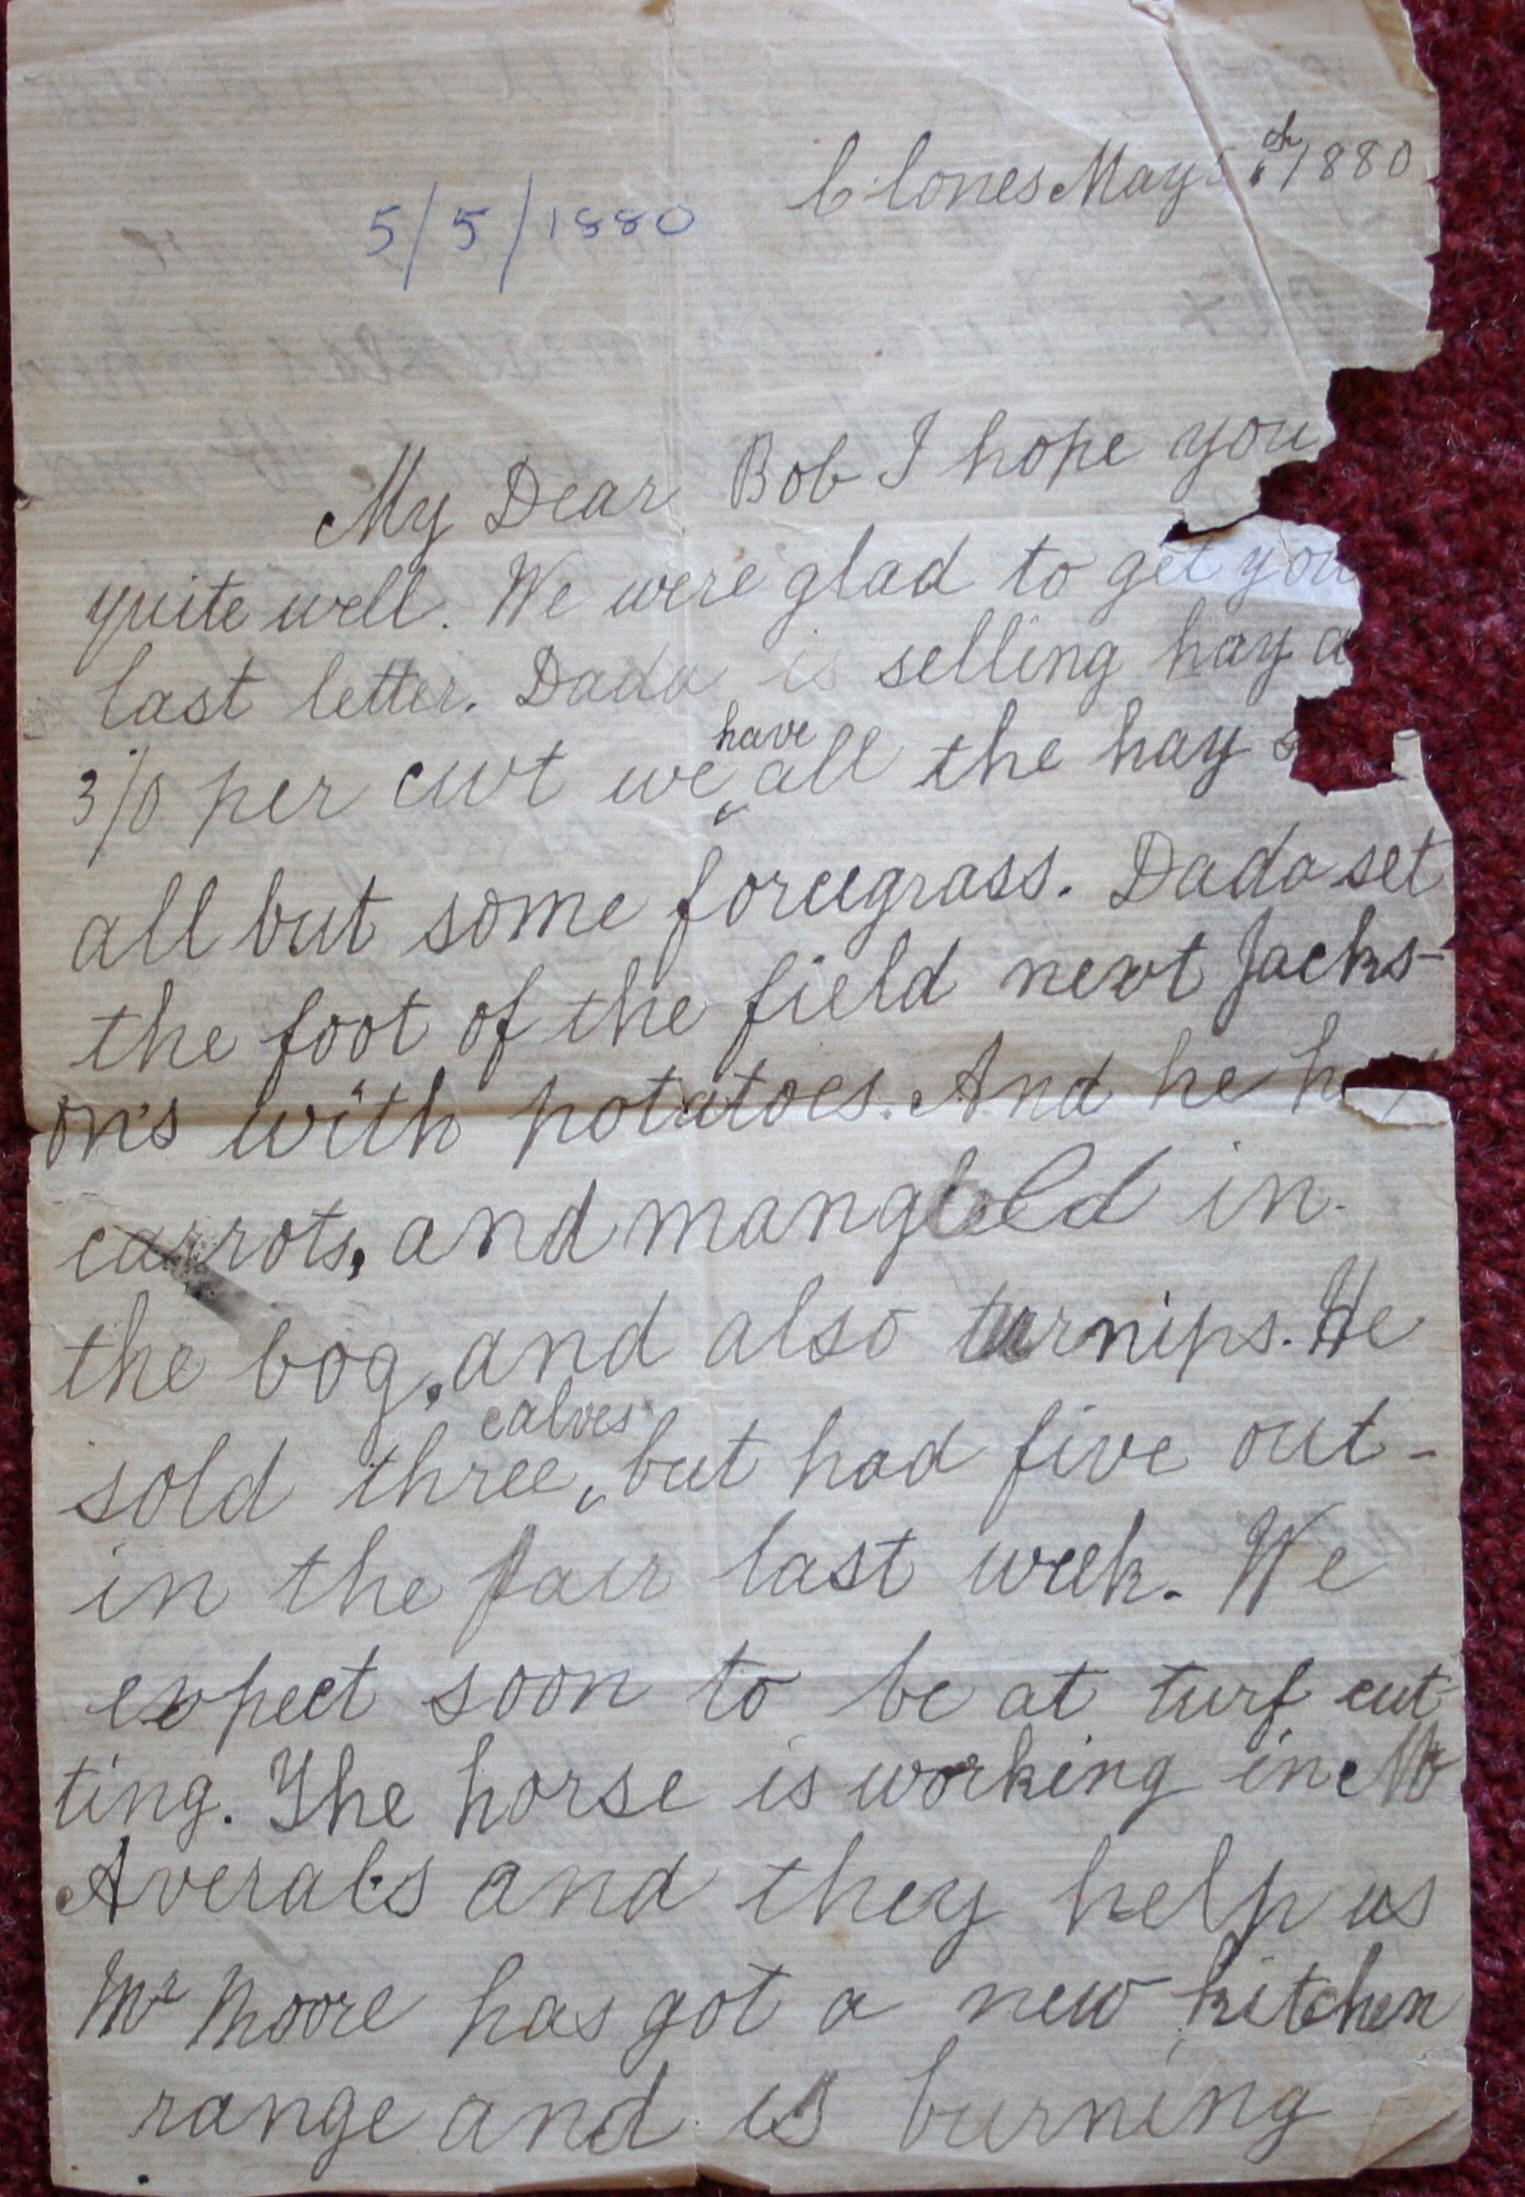 Clones May th 1880
5/5/1880
My Dear Bob I hope you
quite well. We were glad to get you
last letter. Dada is selling hay a
3/0 per cwt we have all the hay s
all but some foreegrass. Dada set
the foot of the field next Jacks-
on's with potatoes. And he h
carrots, and mangold in
the bog, and also turnips. He
sold three calves but had five out-
in the fair last week. We
expect soon to be at turf cut-
ting. The horse is working in Mr
Averals and they help us
Mr Moore has got a new kitchen
range and is burning